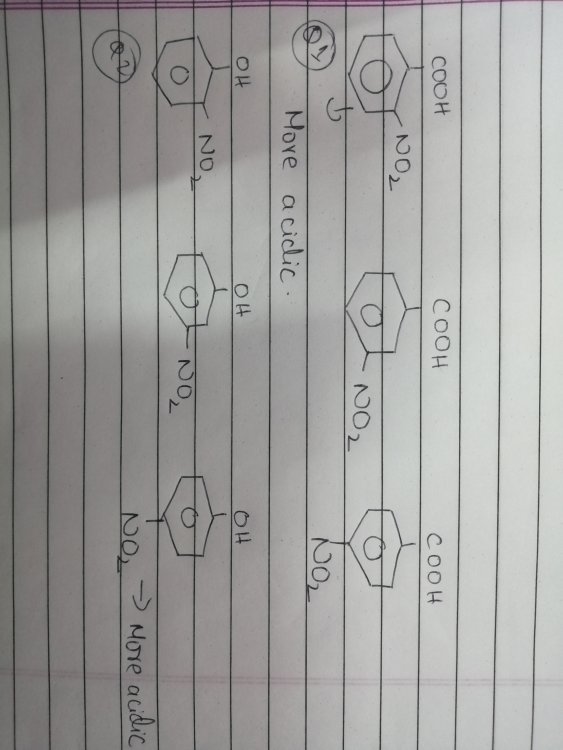 Q1)
COOH COOH COOH
NO₂ NO₂ NO₂
More acidic.
Q2)
OH OH OH
NO₂ NO₂ NO₂ → More acidic